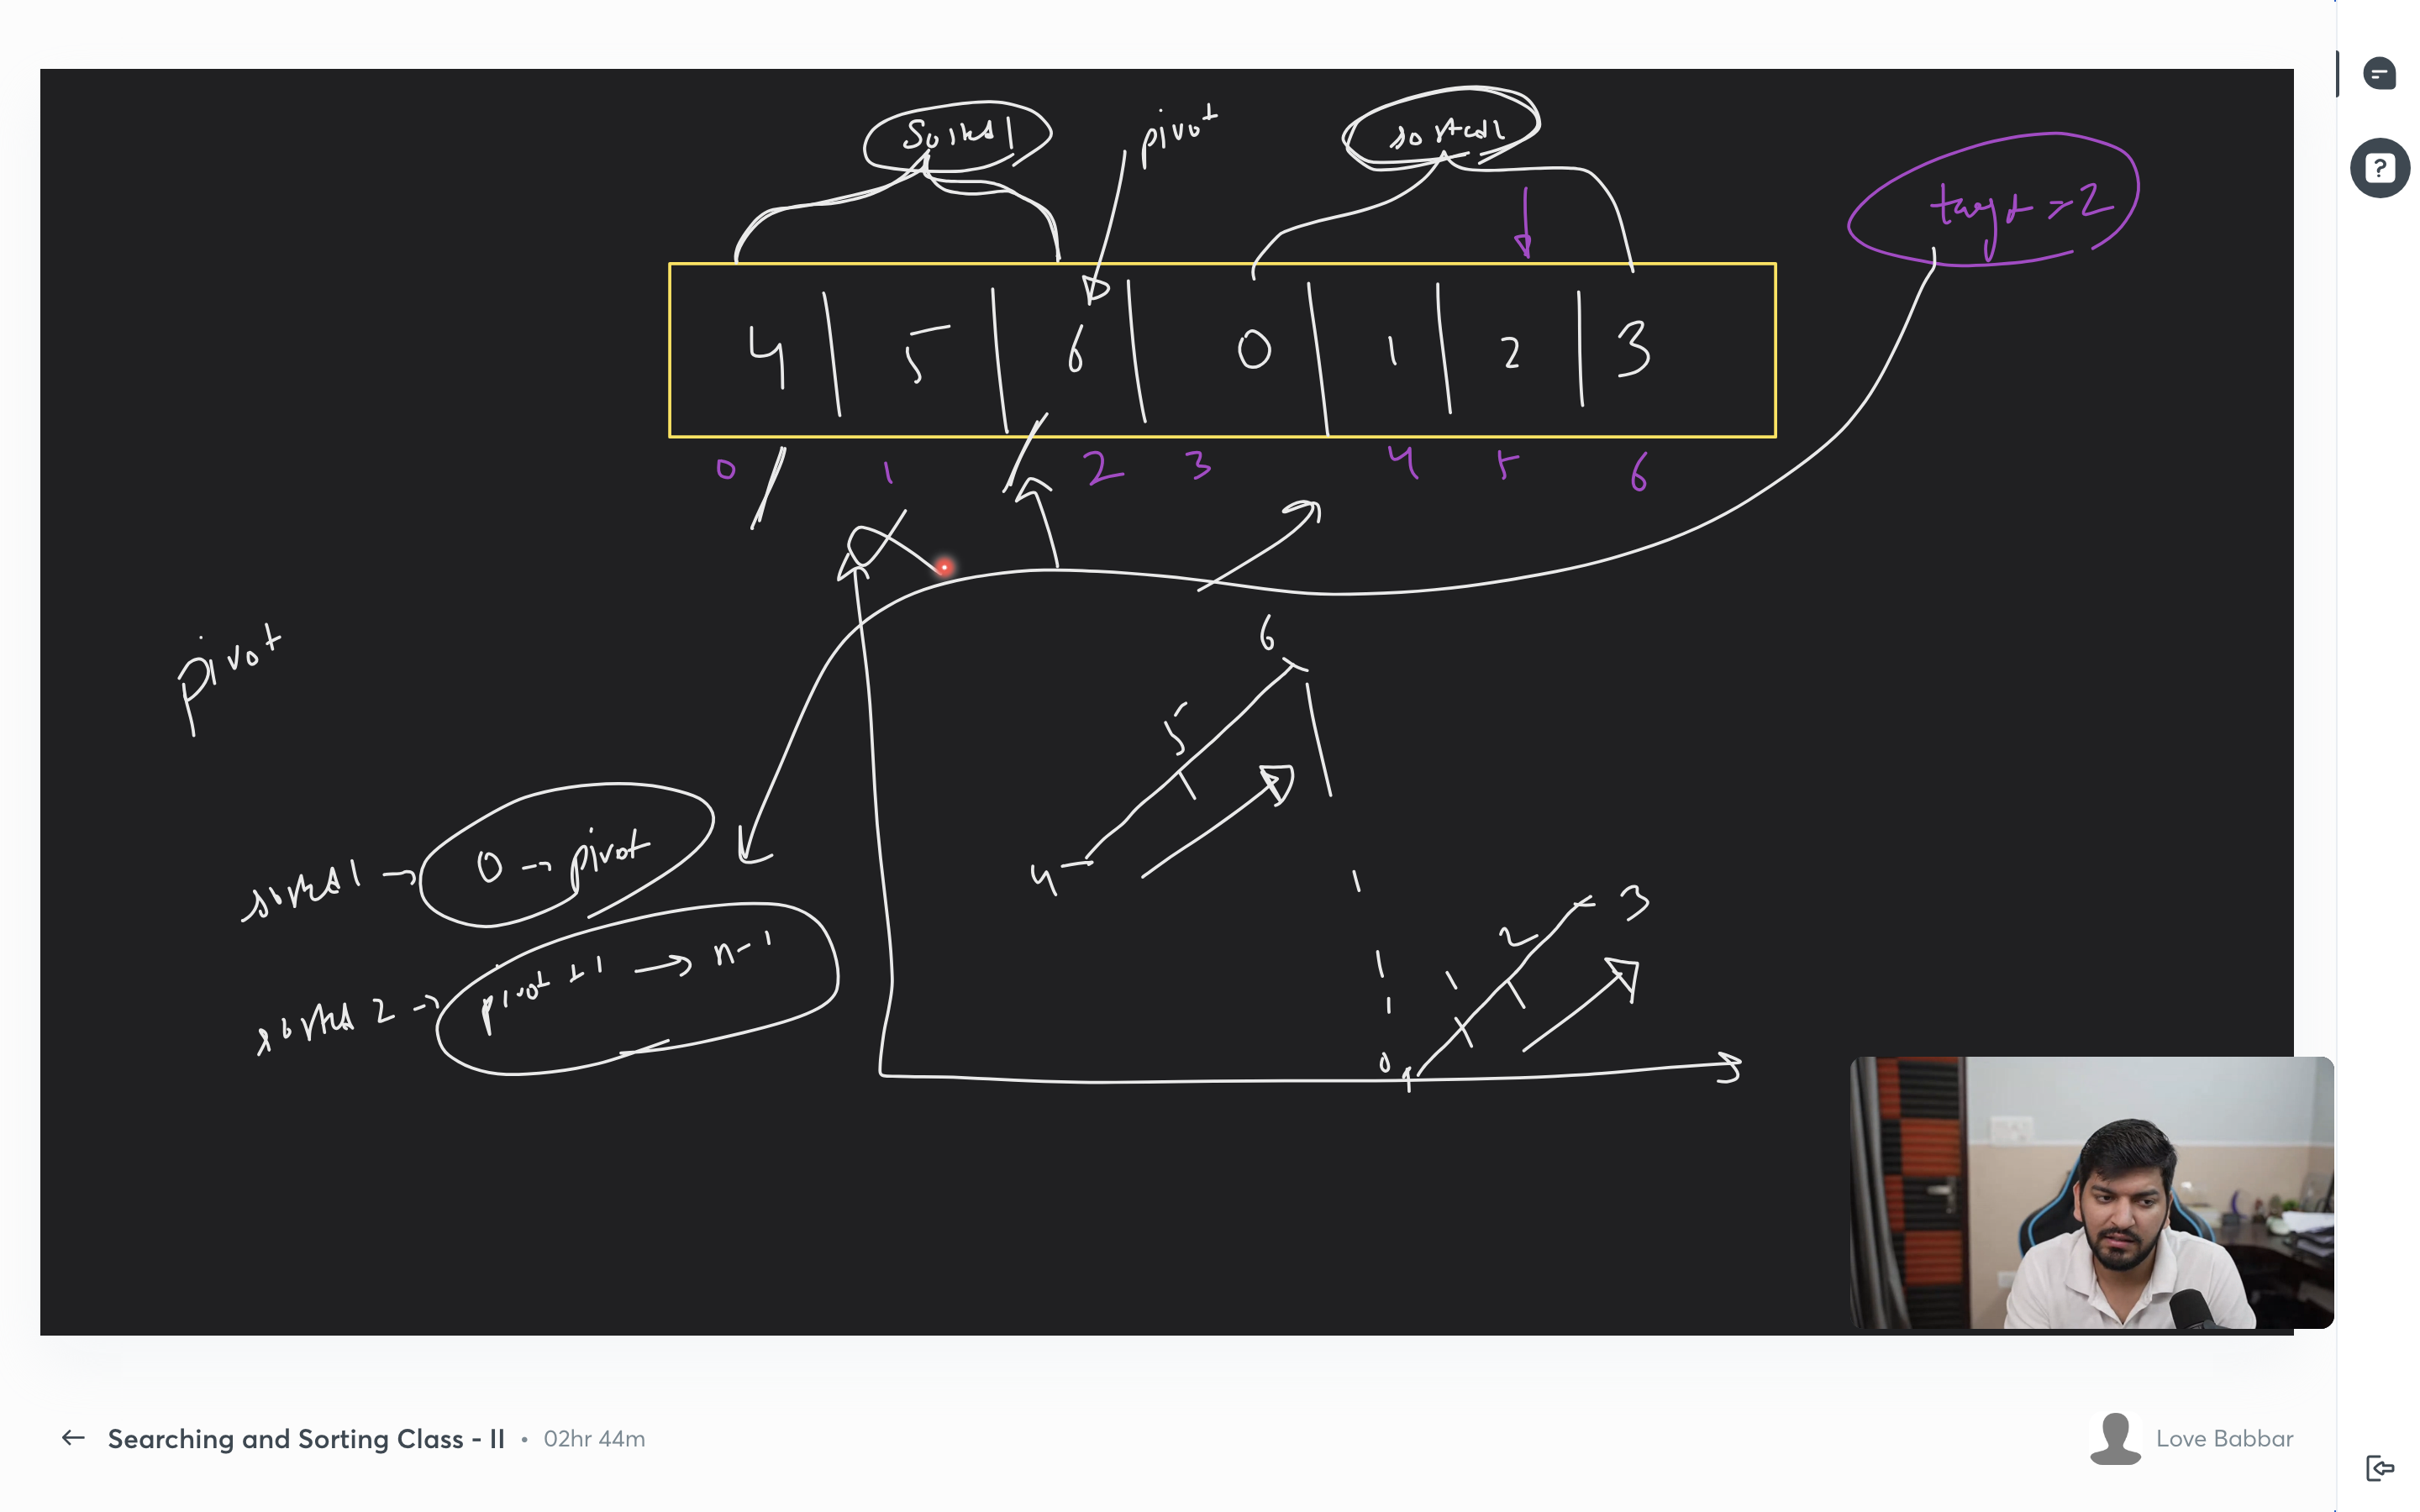 sorted pivot sorted
target = 2
4 5 6 0 1 2 3
0 1 2 3 4 5 6
pivot
6
5
4
sorted 1 → 0 → pivot
sorted 2 → pivot + 1 → n-1
3
2
1
0
Searching and Sorting Class - II • 02hr 44m
Love Babbar
?